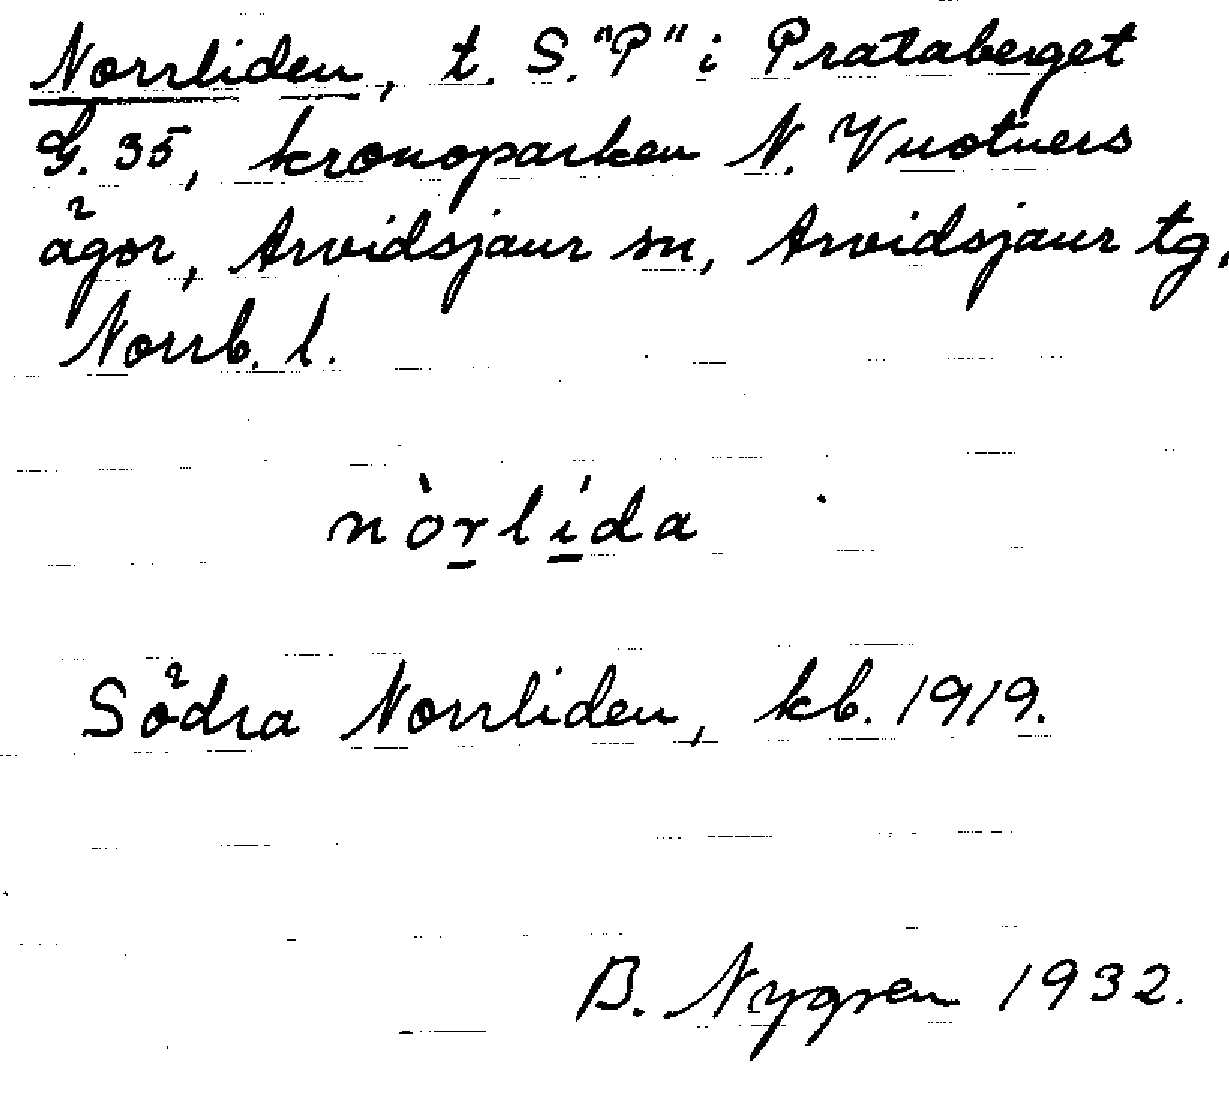 Norrliden, t. S. "P" i Prataberget
G. 35, kronoparken N. Vuotners
ägor, Arvidsjaur sn, Arvidsjaur tg,
Norrb. l.
nòrlída
Södra Norrliden, kb. 1919.
B. Nygren 1932.